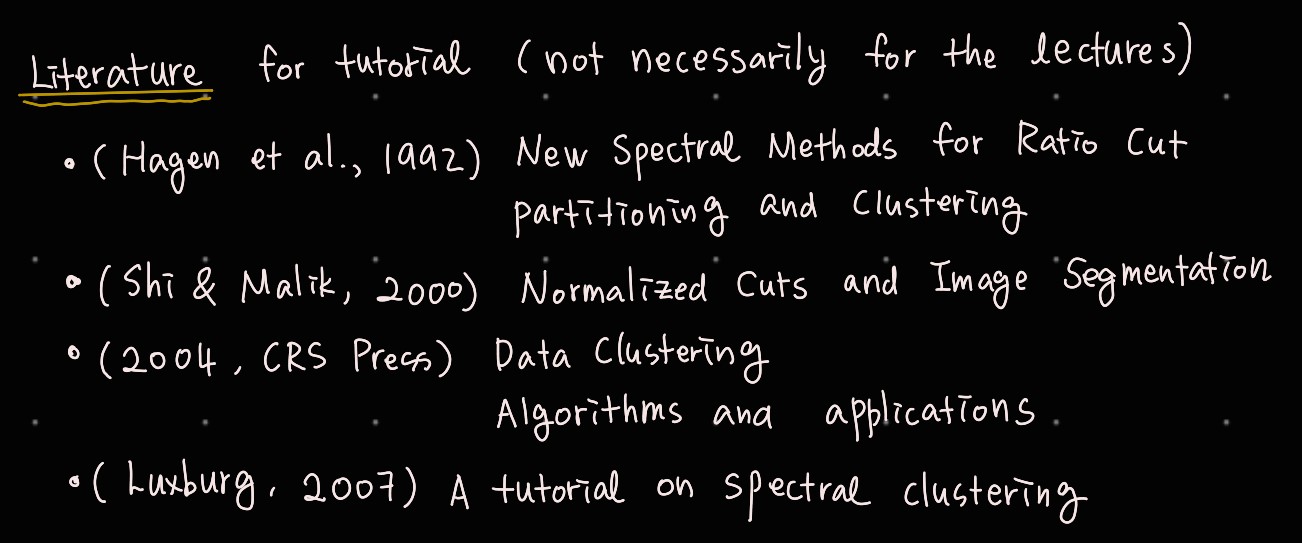 Literature for tutorial (not necessarily for the lectures)
• (Hagen et al., 1992) New Spectral Methods for Ratio Cut
partitioning and Clustering
• (Shi & Malik, 2000) Normalized Cuts and Image Segmentation
• (2004, CRS Press) Data Clustering
Algorithms and applications.
• (Luxburg, 2007) A tutorial on spectral clustering